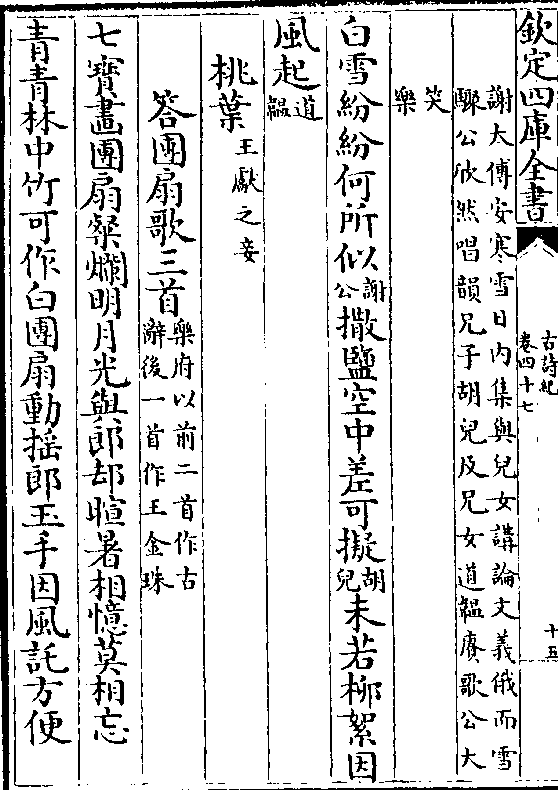 欽定四庫全書
古詩紀
卷四十七
十五
謝太傅安寒雪日内集與兒女講論文義俄而雪
驟公欣然唱韻兄子胡兒及兄女道韞賡歌公大
笑
樂
白雪紛紛何所似謝公撒鹽空中差可擬胡兒未若柳絮因
風起道韞
桃葉王獻之妾
答團扇歌三首樂府以前二首作古辭後一首作王金珠
七寶畫團扇粲爛明月光與郎却暄暑相憶莫相忘
青青林中竹可作白團扇動揺郎玉手因風託方便